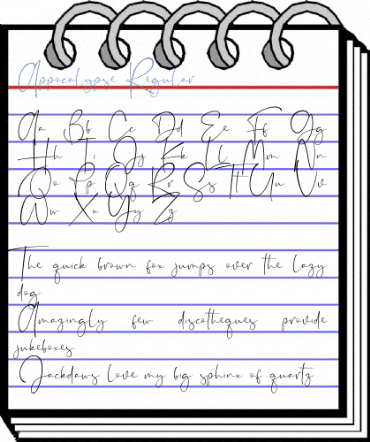 Appocalypse Regular
Aa Bb Cc Dd Ee Ff Gg
Hh Ii Jj Kk Ll Mm Nn
Oo Pp Qq Rr Ss Tt Uu Vv
Ww Xx Yy Zz
The quick brown fox jumps over the lazy
dog
Amazingly few discotheques provide
jukeboxes
Jackdaws love my big sphinx of quartz